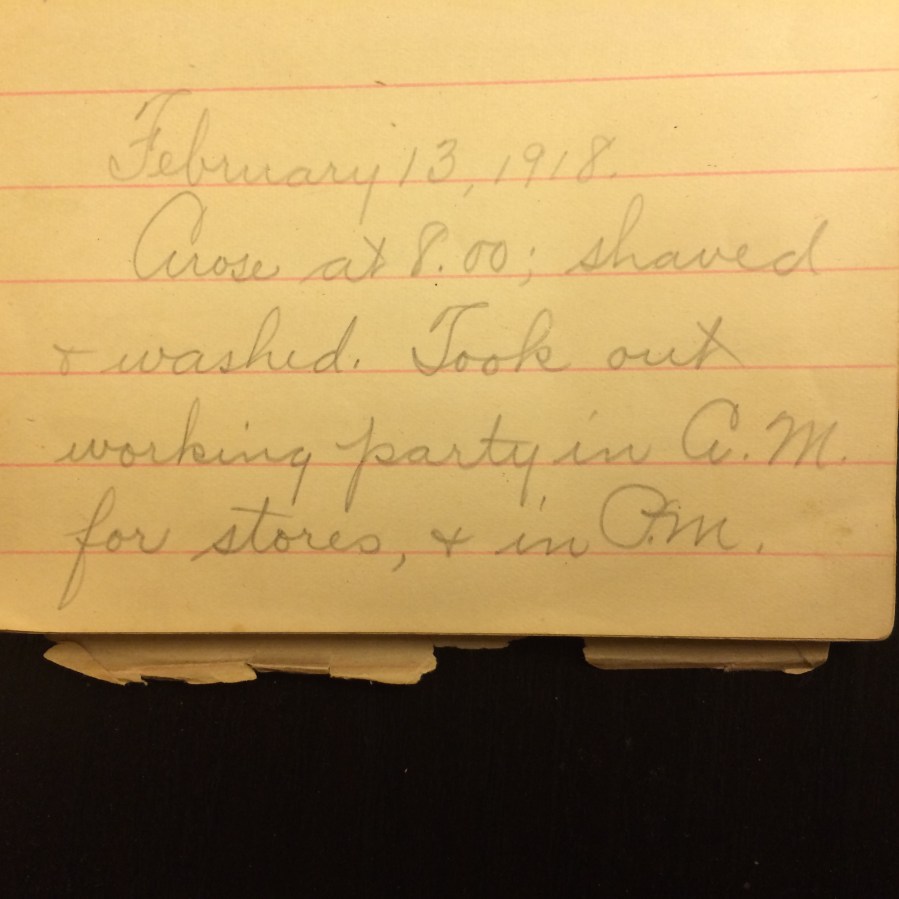 February 13, 1918.
Arose at 8.00; shaved
& washed. Took out
working party in A.M.
for stores, & in P.M.